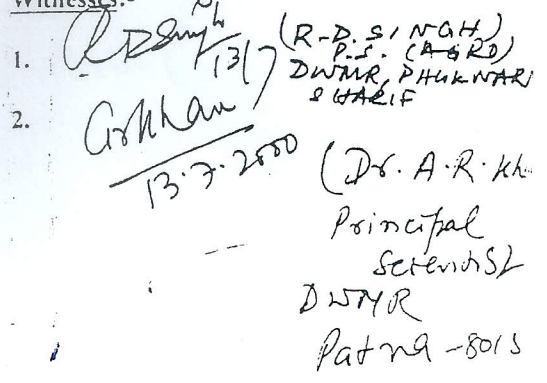 Witnesses:-
1. RDSingh 13/7
(R-D. SINGH)
P.S. (AGRO)
DWMR, PHULWARI
SHARIF
2. Arkhan
13.7.2000
(Dr. A.R. Kh
Principal
Scientist
DWMR
Patna -8015